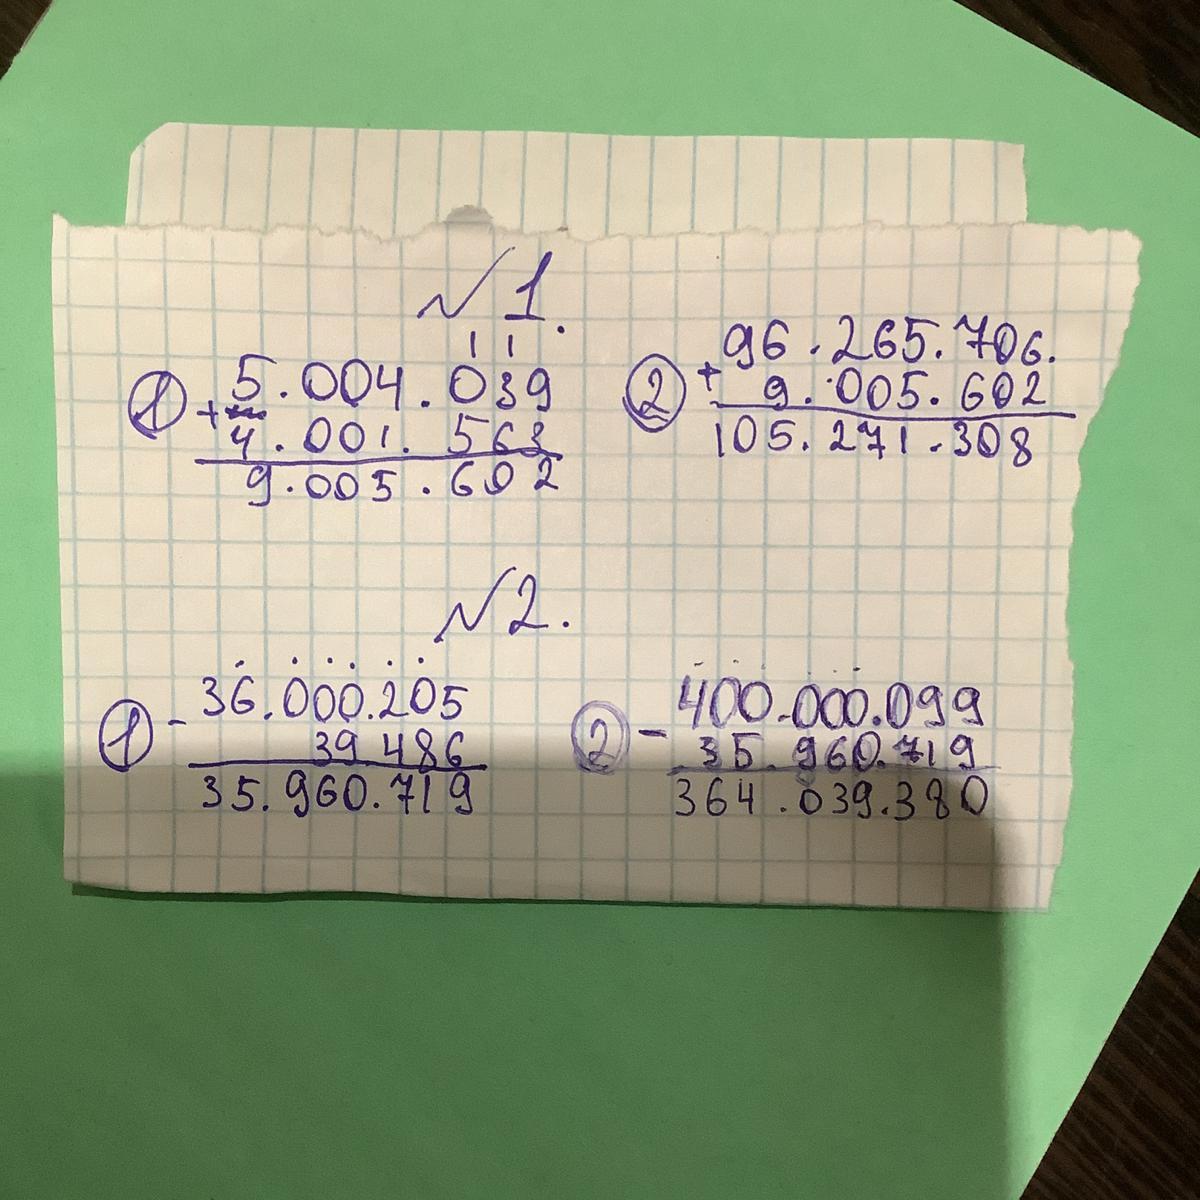 №1.
1 1
① 5.004.039
+
4.001.563
9.005.602
② 96.265.706.
+
9.005.602
105.271.308
№2.
① - 36.000.205
39 486
35.960.719
② - 400.000.099
35.960.719
364.039.380